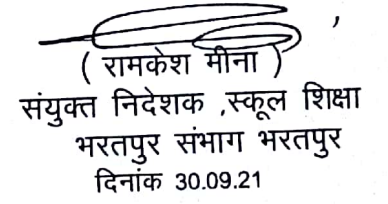 ( रामकेश मीना )
संयुक्त निदेशक ,स्कूल शिक्षा
भरतपुर संभाग भरतपुर
दिनांक 30.09.21